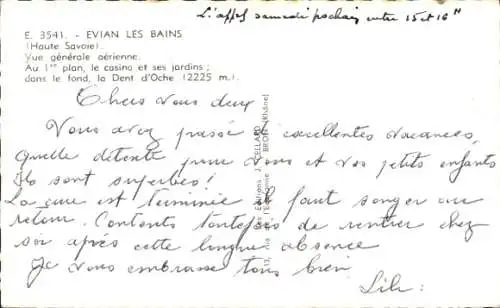 L'appel samedi prochain entre 15 et 16 H
E. 3541. - EVIAN LES BAINS
(Haute Savoie).
Vue générale aérienne.
Au 1er plan, le casino et ses jardins ;
dans le fond, la Dent d'Oche (2225 m.).
Chers vous deux
Vous avez passé d'excellentes vacances,
Quelle détente pour vous et vos petits enfants
ils sont superbes !
La cure est terminée il faut songer au
retour. Contents toutefois de rentrer chez
soi après cette longue absence
Je vous embrasse tous bien
Lili
Editions J. CELLARD
BRON (Rhône)